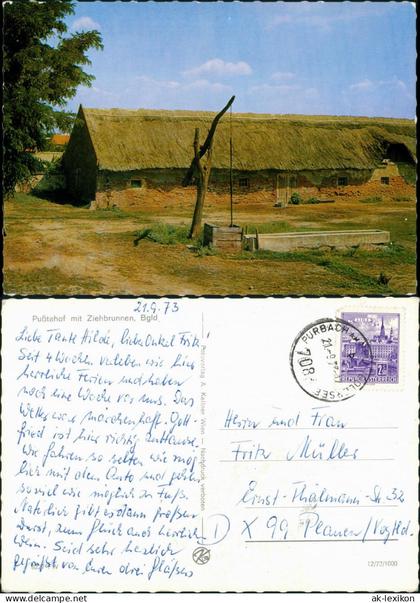 Pußtahof mit Ziehbrunnen, Bgld
21.9.73
Liebe Tante Hilde, liebe Onkel Fritz!
Seit 4 Wochen verleben wir hier
herrliche Ferien und haben
noch eine Woche vor uns. Das
Wetter war märchenhaft. Gott-
fried ist hier richtig
wir fahren so selten wie mög-
lich mit dem Auto und gehen
soviel wie möglich zu Fuß.
Natürlich gibt es dann großen
Durst, zum Glück auch herrlichen
Wein. Seid sehr herzlich
gegrüßt von Euren drei
Reuvertag A. Kellner Wien — Nachdruck verboten
PURBACH AM NEUSIEDLERSEE
7083
REPUBLIK ÖSTERREICH
Herrn und Frau
Fritz Müller
Ernst-Thälmann-Str 32
D X 99 Plauen/Vogtld.
12/72/1000
© ak-ansichtskarten.de
ak-lexikon